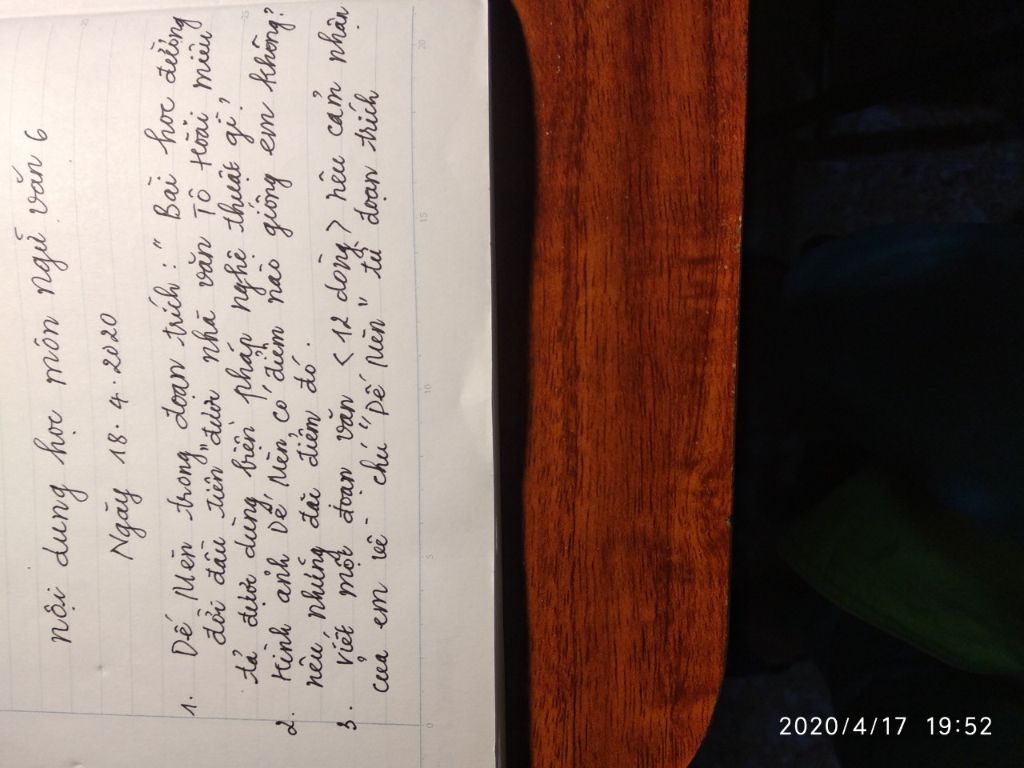 Nội dung học môn ngữ văn 6
Ngày 18.4.2020
1. Dế Mèn trong đoạn trích: "Bài học đường
đời đầu tiên" được nhà văn Tô Hoài miêu
tả được dùng biện pháp nghệ thuật gì?
2. Hình ảnh Dế Mèn có điểm nào giống em không?
nêu những đặc điểm đó.
3. Viết một đoạn văn < 12 dòng > nêu cảm nhận
của em về chú "Dế Mèn" từ đoạn trích
0 5 10 15 20
2020/4/17 19:52